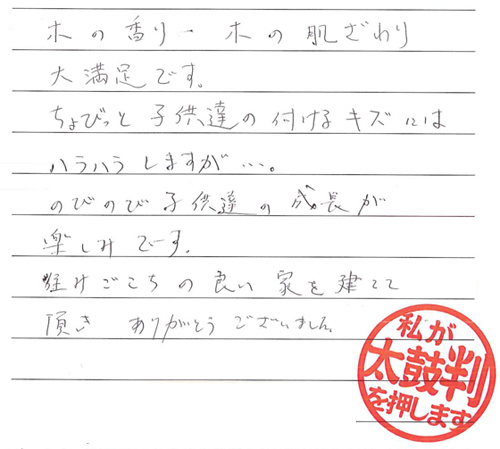 木の香り一 木の肌ざわり
大満足です。
ちょびっと 子供達の付けるキズには
ハラハラしますが…。
のびのび子供達の成長が
楽しみです。
住けごこちの良い家を建てて
頂き ありがとうございました
私が
太鼓判
を押します